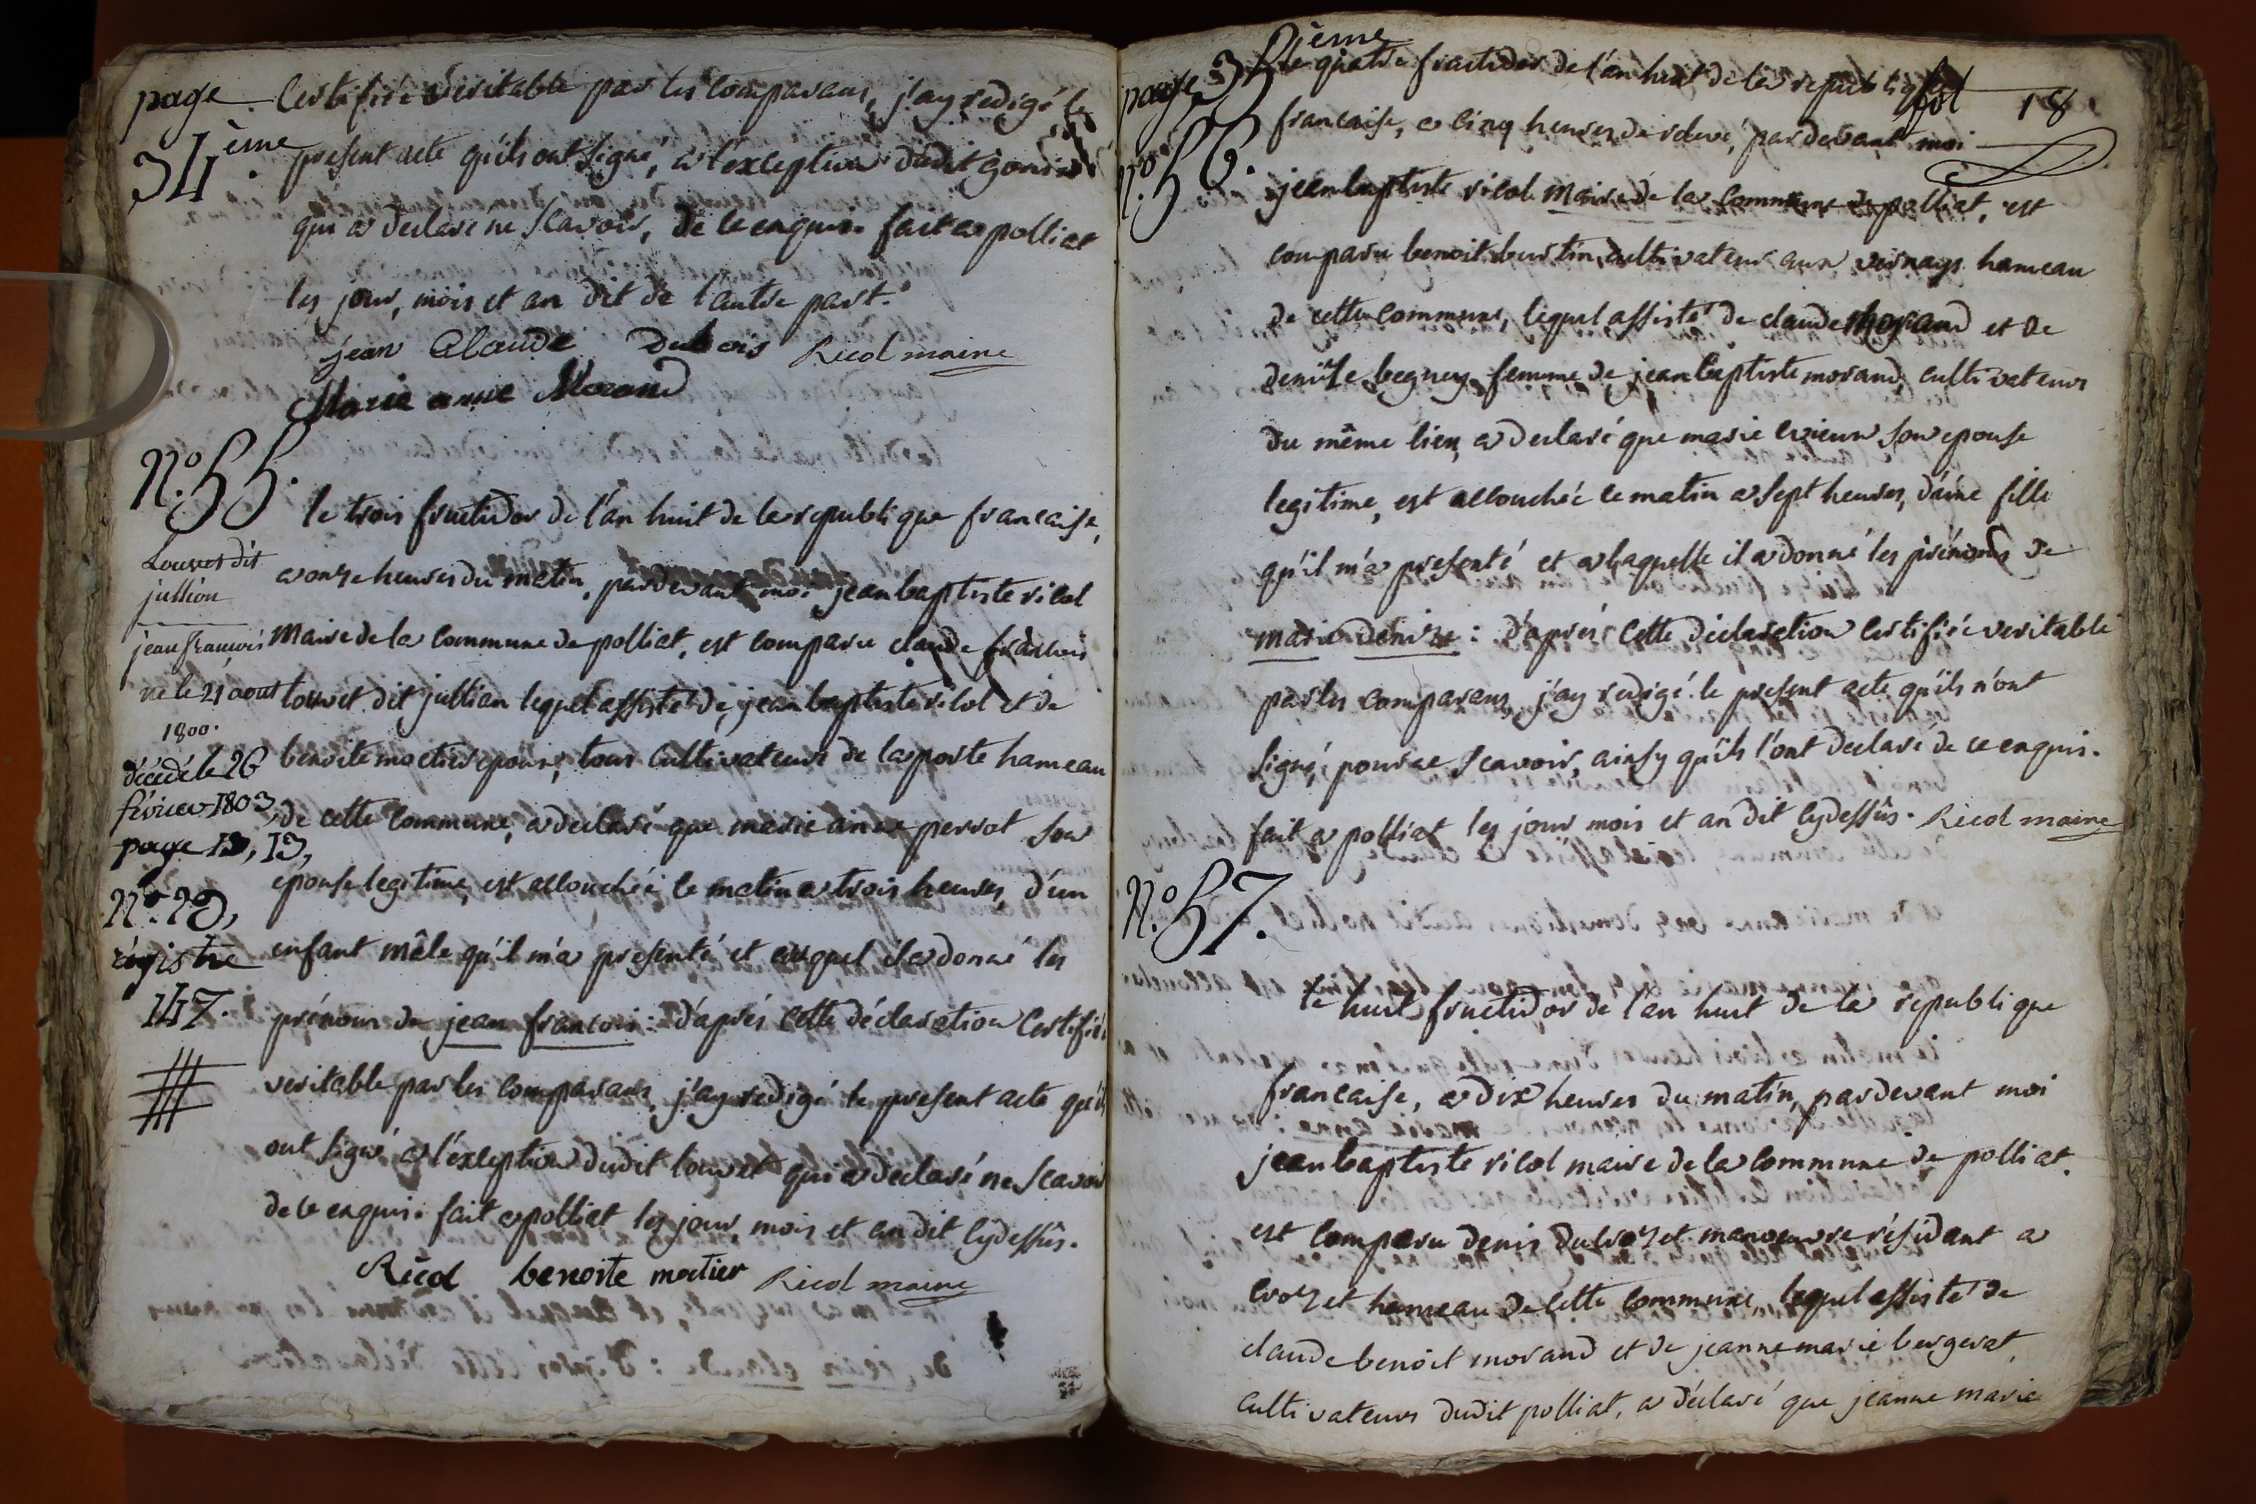 page 34ème.
Certifiée veritable par les comparans, j'ay redigé le
present acte qu'ils ont signé, a l'exception dudit gonin
qui a declaré ne scavoir, de ce enquis. fait a polliat
les jour, mois et an dit de l'autre part.
jean Claude Dubois Ricol maire
Marie anne Morand
N.º 55.
le trois fructidor de l'an huit de la republique francaise,
a onze heures du matin, pardevant moi jean baptiste ricol
maire de la commune de polliat, est comparu claude francois
louvet dit jullian lequel assisté de jean baptiste ricol et de
benoite moctier epoux, tous cultivateurs de la poste hameau
de cette commune, a declaré que marie anne perrot son
epouse legitime, est accouchée ce matin a trois heures, d'un
enfant mâle qu'il m'a presenté et auquel il a donné les
prénoms de jean francois : d'aprés cette déclaration certifiée
veritable par les comparans, j'ay redigé le present acte qu'ils
ont signé a l'exception dudit louvet qui a declaré ne scavoir
de ce enquis. fait a polliat les jour, mois et an dit cydessûs.
Ricol benoite moctier Ricol maire
Louvet dit
jullion
jean françois
né le 21 aout
1800.
décédé le 26
février 1803,
page 13, 13,
N.º
régistre
147.
page 35ème
fol 18
N.º 56.
le quatre fructidor de l'an huit de la republique
francaise, a cinq heures de relevé, pardevant moi
jean baptiste ricol maire de la commune de polliat, est
comparu benoit burtin cultivateur aux vernays hameau
de cette commune, lequel assisté de claude morand et de
denise beguey femme de jean baptiste morand cultivateurs
du même lieu, a declaré que marie son epouse
legitime, est accouchée ce matin a sept heures, d'une fille
qu'il m'a presenté et a laquelle il a donné les prénoms de
marie denise : d'aprés cette déclaration certifiée veritable
par les comparans, j'ay redigé le present acte qu'ils n'ont
signé, pour ne scavoir, ainsy qu'ils l'ont declaré de ce enquis.
fait a polliat les jour mois et an dit cydessûs. Ricol maire
N.º 57.
le huit fructidor de l'an huit de la republique
francaise, a dix heures du matin, pardevant moi
jean baptiste ricol maire de la commune de polliat.
est comparu denis ducrozet manoeuvre résidant a
crozet hameau de cette commune, lequel assisté de
claude benoit morand et de jeanne marie bergerat,
cultivateurs dudit polliat, a déclaré que jeanne marie